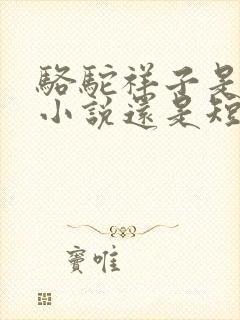 駱駝祥子是
小說還是短
竇唯